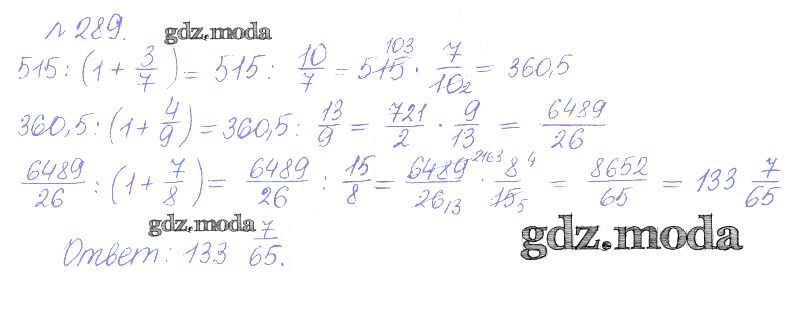 № 289. gdz.moda
515 : (1 + 3/7) = 515 : 10/7 = 515 103 · 7/10 2 = 360,5
360,5 : (1 + 4/9) = 360,5 : 13/9 = 721/2 · 9/13 = 6489/26
6489/26 : (1 + 7/8) = 6489/26 : 15/8 = 6489 2163/26 13 · 8 4/15 5 = 8652/65 = 133 7/65
gdz.moda
Ответ: 133 7/65.
gdz.moda